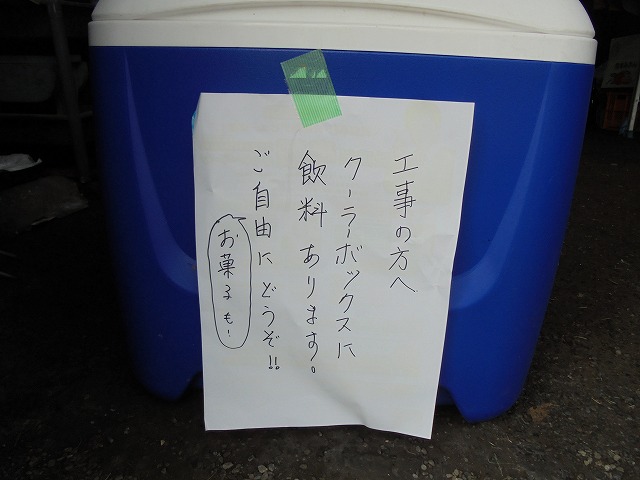 工事の方へ
クーラーボックスに
飲料あります。
ご自由にどうぞ!!
お菓子も!